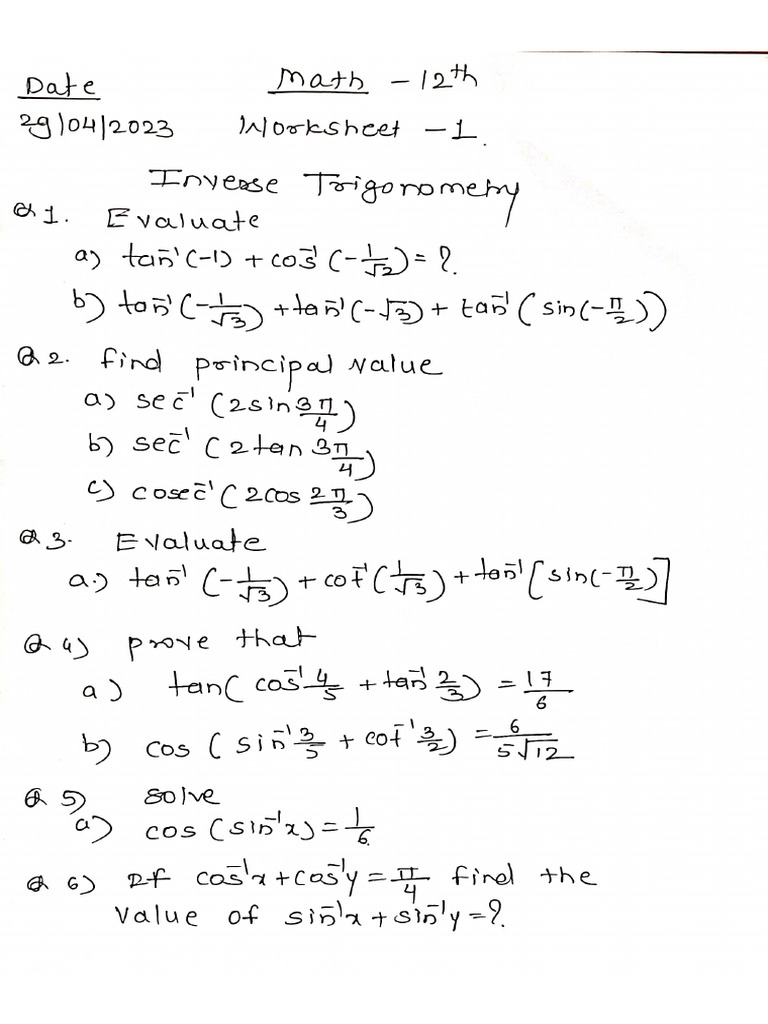 Date Math - 12th
29/04/2023 Worksheet - 1.
Inverse Trigonometry
Q 1. Evaluate
a) tan⁻¹(-1) + cos⁻¹(-1/√2) = ?
b) tan⁻¹(-1/√3) + tan⁻¹(-√3) + tan⁻¹(sin(-π/2))
Q 2. find principal value
a) sec⁻¹(2sin 3π/4)
b) sec⁻¹(2tan 3π/4)
c) cosec⁻¹(2cos 2π/3)
Q 3. Evaluate
a.) tan⁻¹(-1/√3) + cot⁻¹(1/√3) + tan⁻¹[sin(-π/2)]
Q 4) prove that
a) tan(cos⁻¹ 4/5 + tan⁻¹ 2/3) = 17/6
b) cos(sin⁻¹ 3/5 + cot⁻¹ 3/2) = 6/5√12
Q 5) solve
a) cos(sin⁻¹x) = 1/6.
Q 6) If cos⁻¹x + cos⁻¹y = π/4 find the
value of sin⁻¹x + sin⁻¹y = ?